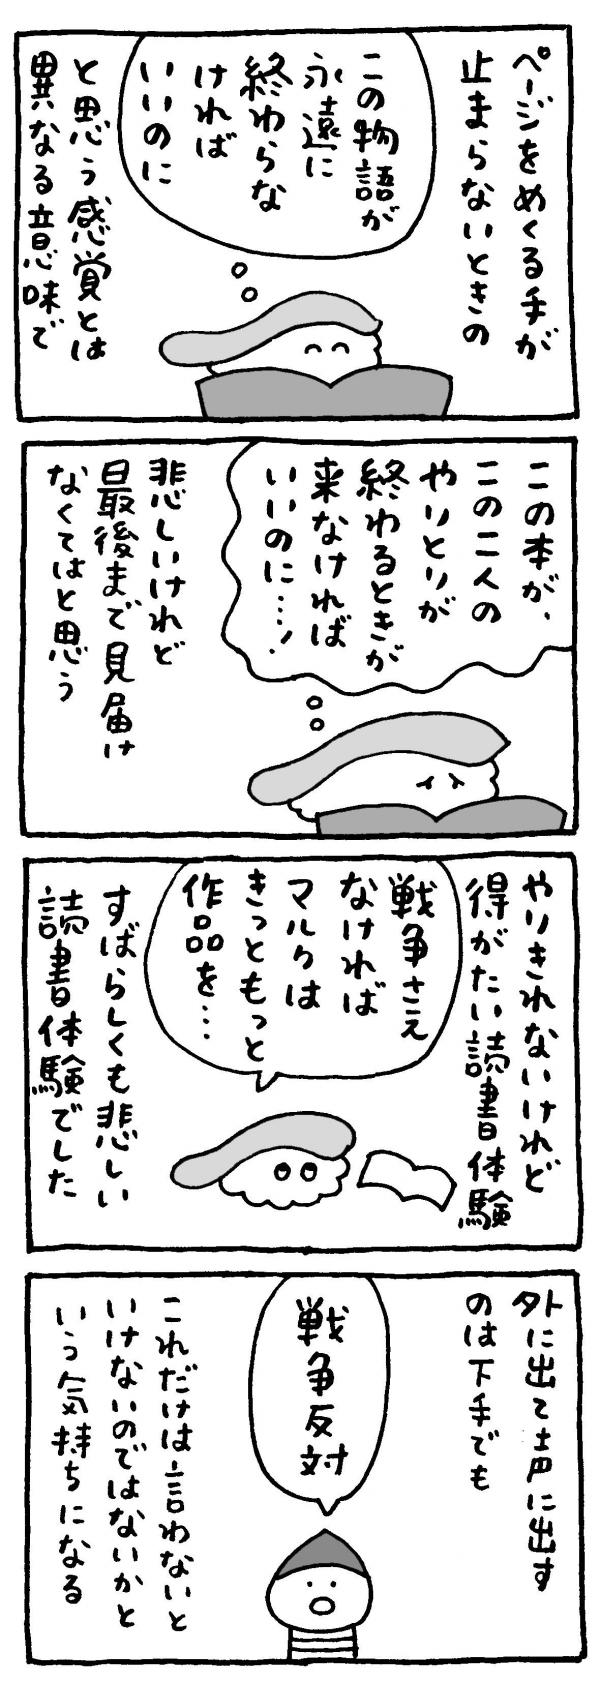 ページをめくる手が
止まらないときの
この物語が
永遠に
終わらな
ければ
いいのに
と思う感覚とは
異なる意味で
この本が、
この二人の
やりとりが
終わるときが
来なければ
いいのに…!
悲しいけれど
最後まで見届け
なくてはと思う
やりきれないけれど
得がたい読書体験
戦争さえ
なければ
マルクは
きっともっと
作品を…
すばらしくも悲しい
読書体験でした
外に出て声に出す
のは下手でも
戦争反対
これだけは言わないと
いけないのではないかと
いう気持ちになる